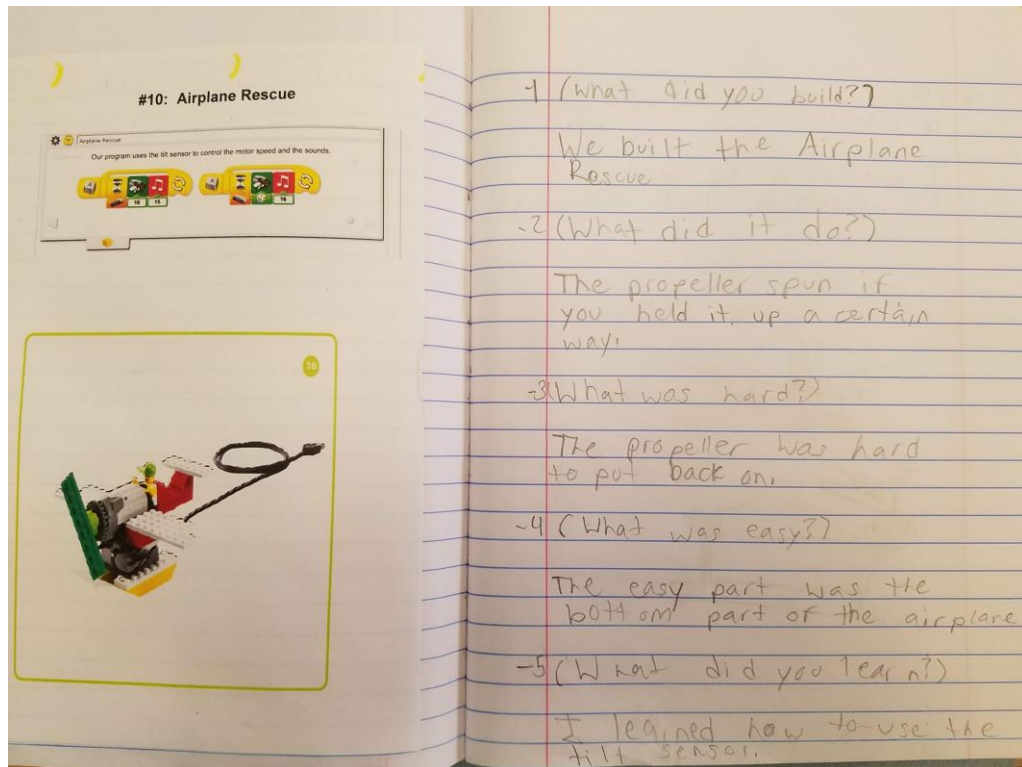 #10: Airplane Rescue
Airplane Rescue
Our program uses the tilt sensor to control the motor speed and the sounds.
10 15
16
10
-1 (What did you build?)
We built the Airplane
Rescue
-2 (What did it do?)
The propeller spun if
you held it up a certain
way.
-3 (What was hard?)
The propeller was hard
to put back on.
-4 (What was easy?)
The easy part was the
bottom part of the airplane
-5 (What did you learn?)
I learned how to use the
tilt sensor.